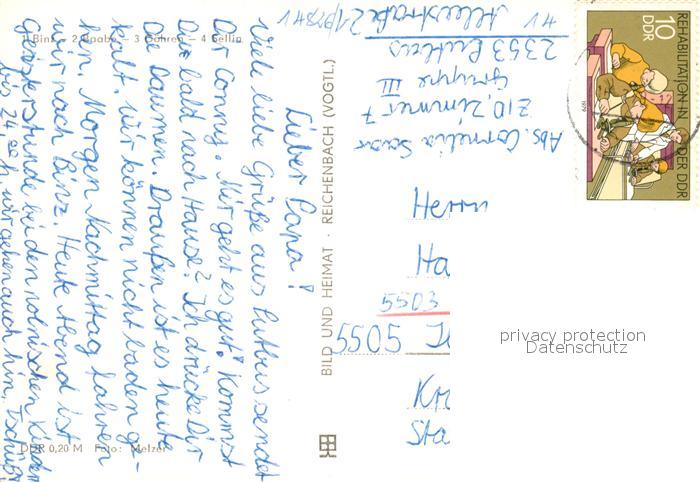 1 Binz – 2 Baabe – 3 Göhren – 4 Sellin
Lieber Papa!
Viele liebe Grüße aus Putbus sendet
Dir Conny. Mir geht es gut. Kommst
Du bald nach Hause? Ich drücke Dir
die Daumen. Draußen ist es heute
kalt. Wir können nicht baden ge-
hen. Morgen Nachmittag fahren
wir nach Binz. Heute Abend ist
Geisterstunde bei den polnischen Kindern
bis 24.00 h, wir gehen auch hin. Tschüß
DDR 0,20 M Foto: Melzer
BILD UND HEIMAT · REICHENBACH (VOGTL.)
Abs. Cornelia
ZIO Zimmer 7
Gruppe III
2353 Putbus
Alleestraße
Herrn
Ha
5503
5505
Kr
Sta
10
DDR
REHABILITATION IN DER DDR
1979
privacy protection
Datenschutz